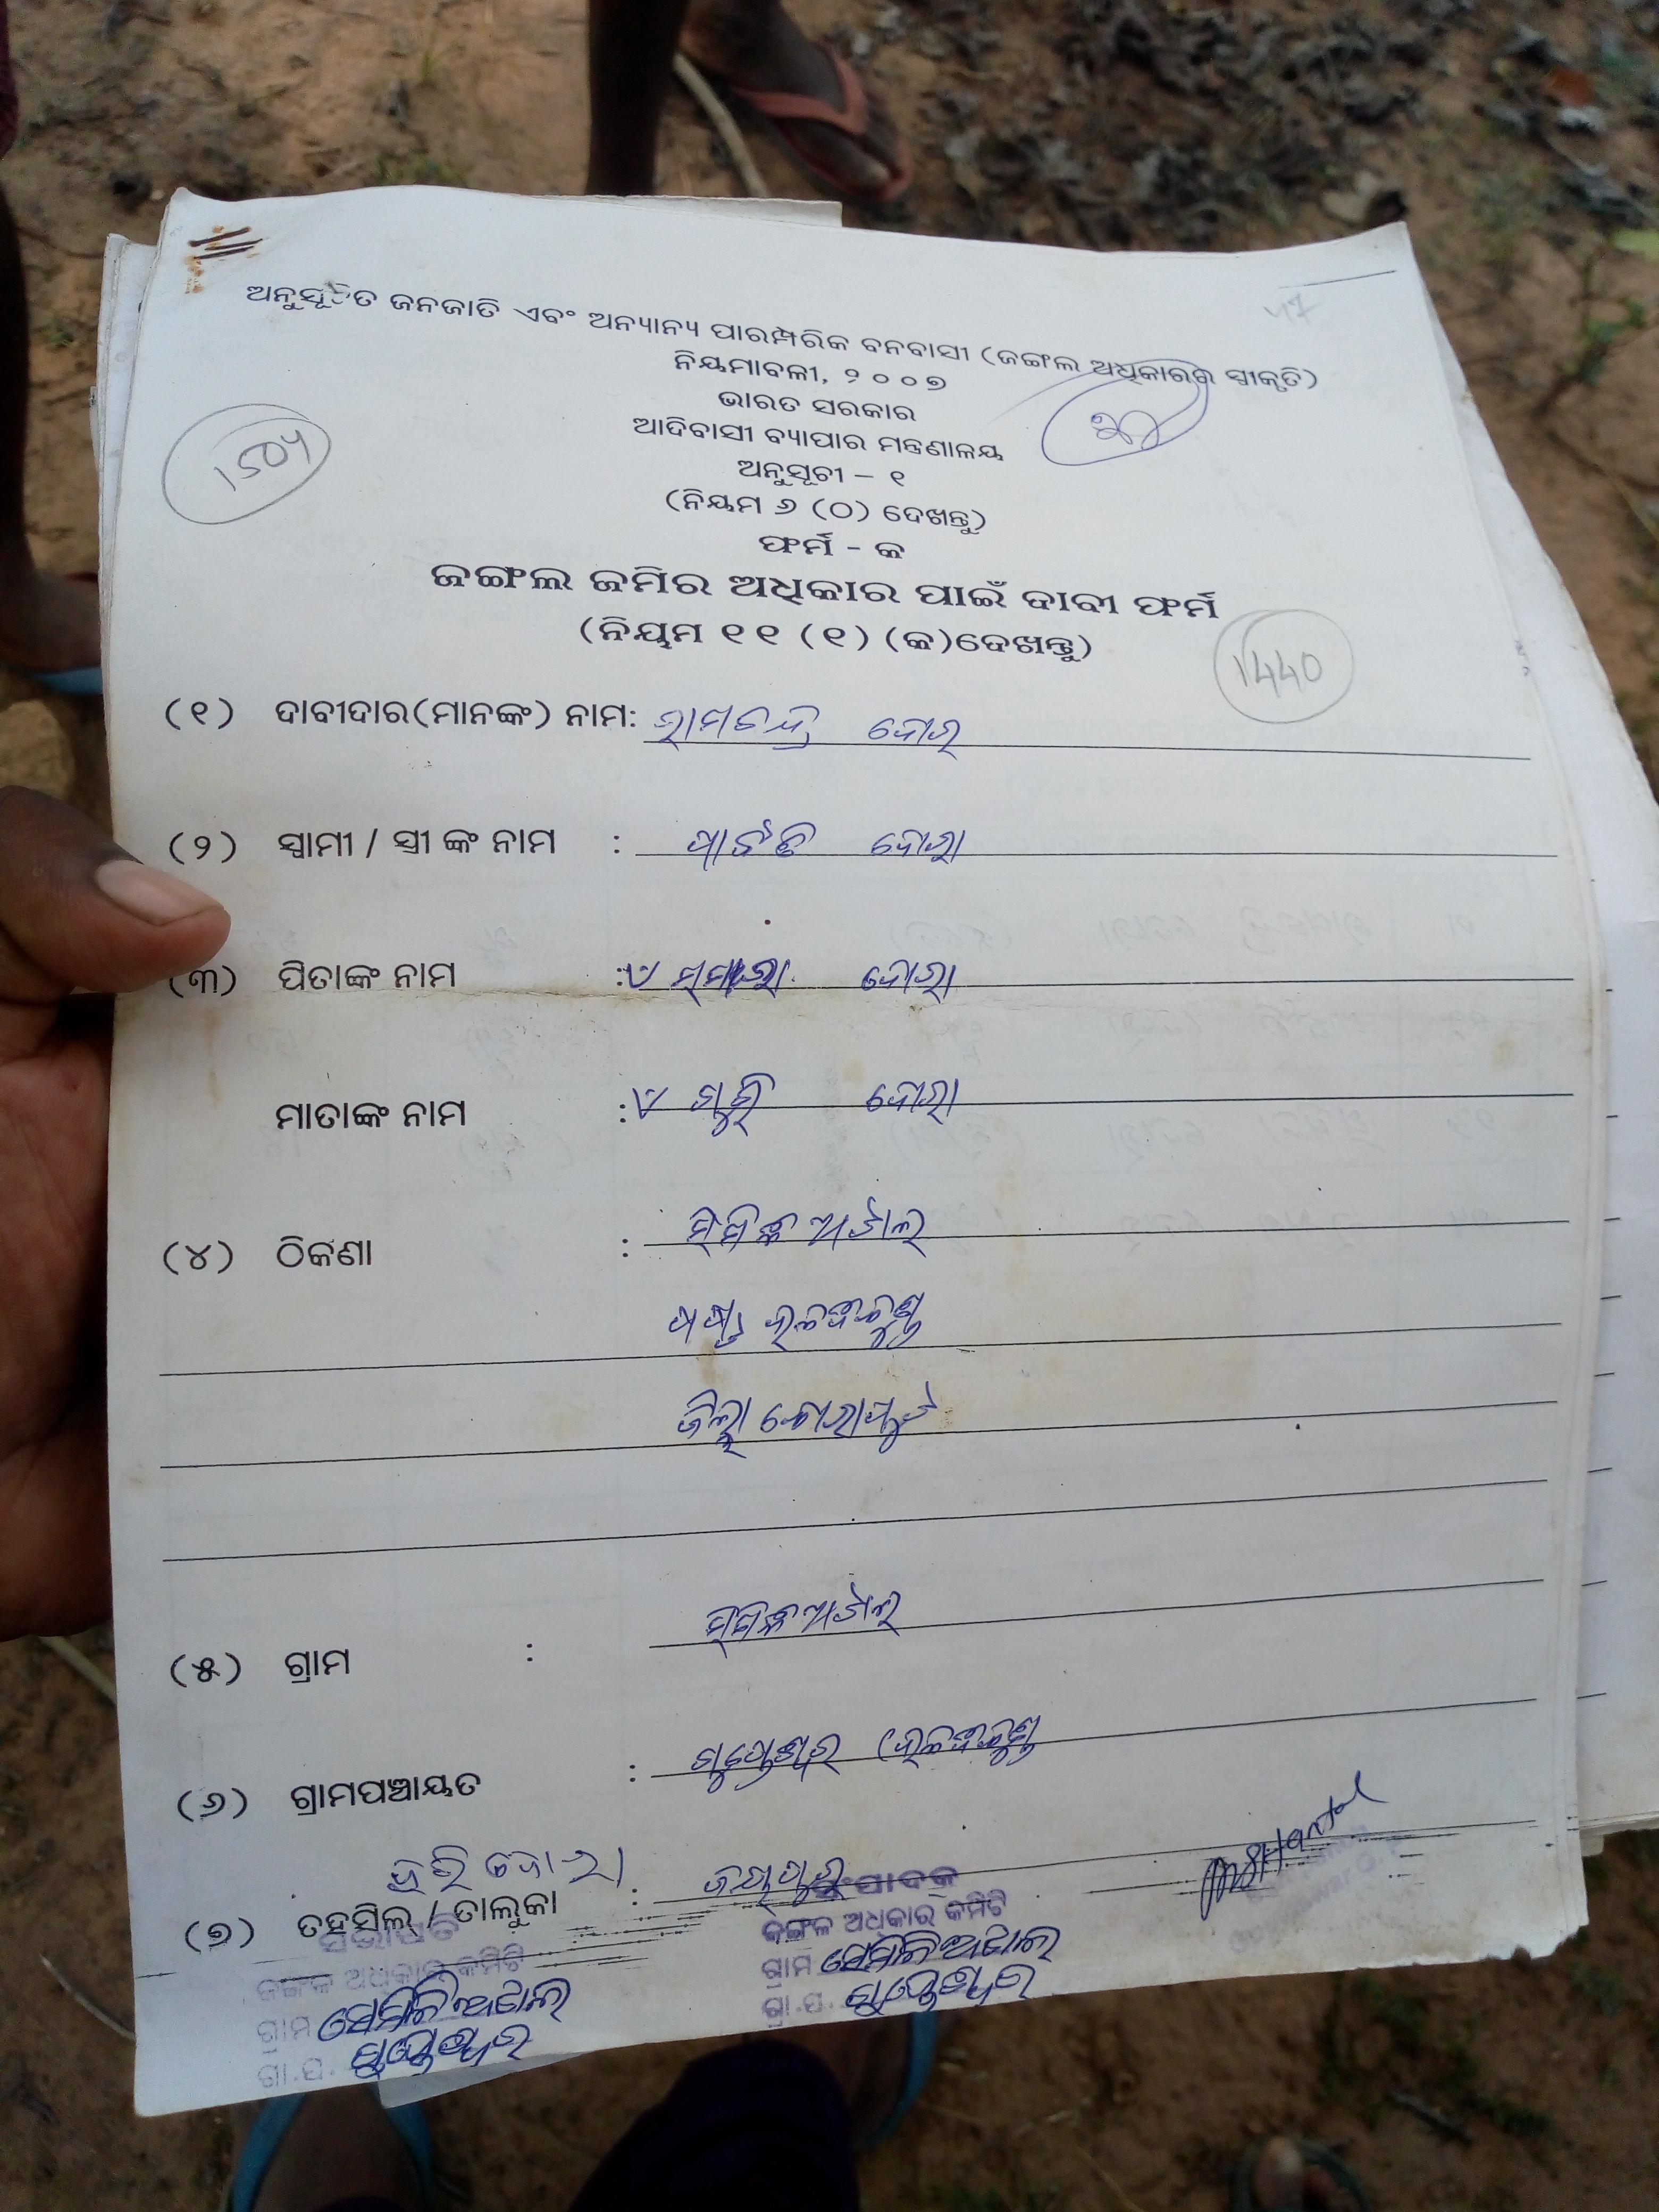 ଅନୁସୂଚିତ ଜନଜାତି ଏବଂ ଅନ୍ୟାନ୍ୟ ପାରମ୍ପରିକ ବନବାସୀ (ଜଙ୍ଗଲ ଅଧିକାରର ସ୍ୱୀକୃତି)
ନିୟମାବଳୀ, ୨୦୦୭
ଭାରତ ସରକାର
ଆଦିବାସୀ ବ୍ୟାପାର ମନ୍ତ୍ରଣାଳୟ
ଅନୁସୂଚୀ – ୧
(ନିୟମ ୬ (ଠ) ଦେଖନ୍ତୁ)
ଫର୍ମ - କ
ଜଙ୍ଗଲ ଜମିର ଅଧିକାର ପାଇଁ ଦାବୀ ଫର୍ମ
(ନିୟମ ୧୧ (୧) (କ)ଦେଖନ୍ତୁ)
1440
(୧) ଦାବୀଦାର(ମାନଙ୍କ) ନାମ: ରାମଚନ୍ଦ୍ର ଦୋରା
(୨) ସ୍ୱାମୀ / ସ୍ତ୍ରୀ ଙ୍କ ନାମ : ପାର୍ବତି ଦୋରା
(୩) ପିତାଙ୍କ ନାମ : ଦୋରା
ମାତାଙ୍କ ନାମ : ଦୋରା
(୪) ଠିକଣା :
ଜିଲ୍ଲା କୋରାପୁଟ
(୫) ଗ୍ରାମ :
(୬) ଗ୍ରାମପଞ୍ଚାୟତ : ଗୁପ୍ତେଶ୍ୱର
ହରି ଦୋରା
(୭) ତହସିଲ୍ / ତାଲୁକା : ଜୟପୁର
ସଭାପତି
ଜଙ୍ଗଲ ଅଧିକାର କମିଟି
ଗ୍ରାମ ସେମିଳିଅଟାଲ
ଗ୍ରା.ପ. ଗୁପ୍ତେଶ୍ୱର
ସଂପାଦକ
ଜଙ୍ଗଲ ଅଧିକାର କମିଟି
ଗ୍ରାମ ସେମିଳିଅଟାଲ
ଗ୍ରା.ପ. ଗୁପ୍ତେଶ୍ୱର